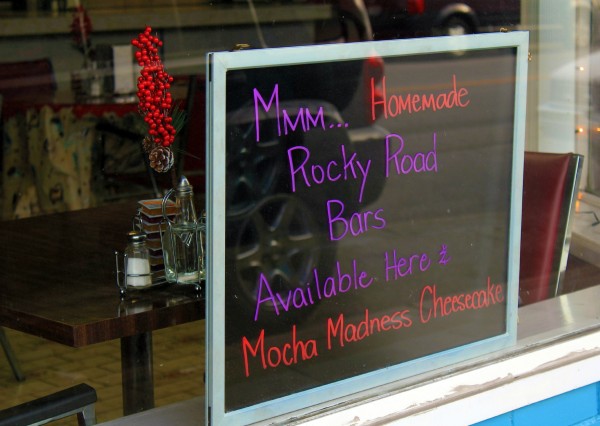 Mmm... Homemade
Rocky Road
Bars
Available Here &
Mocha Madness Cheesecake